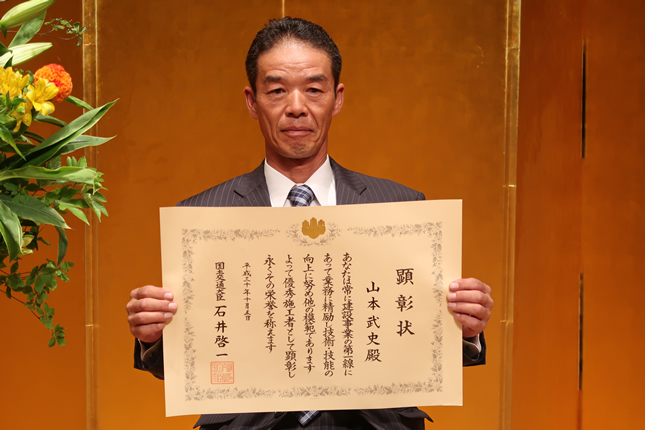 顕彰状
山本武史殿
あなたは常に建設事業の第一線に
あって業務に精励し技術・技能の
向上に努め他の模範であります
よって優秀施工者として顕彰し
永くその栄誉を称えます
平成
国土交通大臣 石井啓一